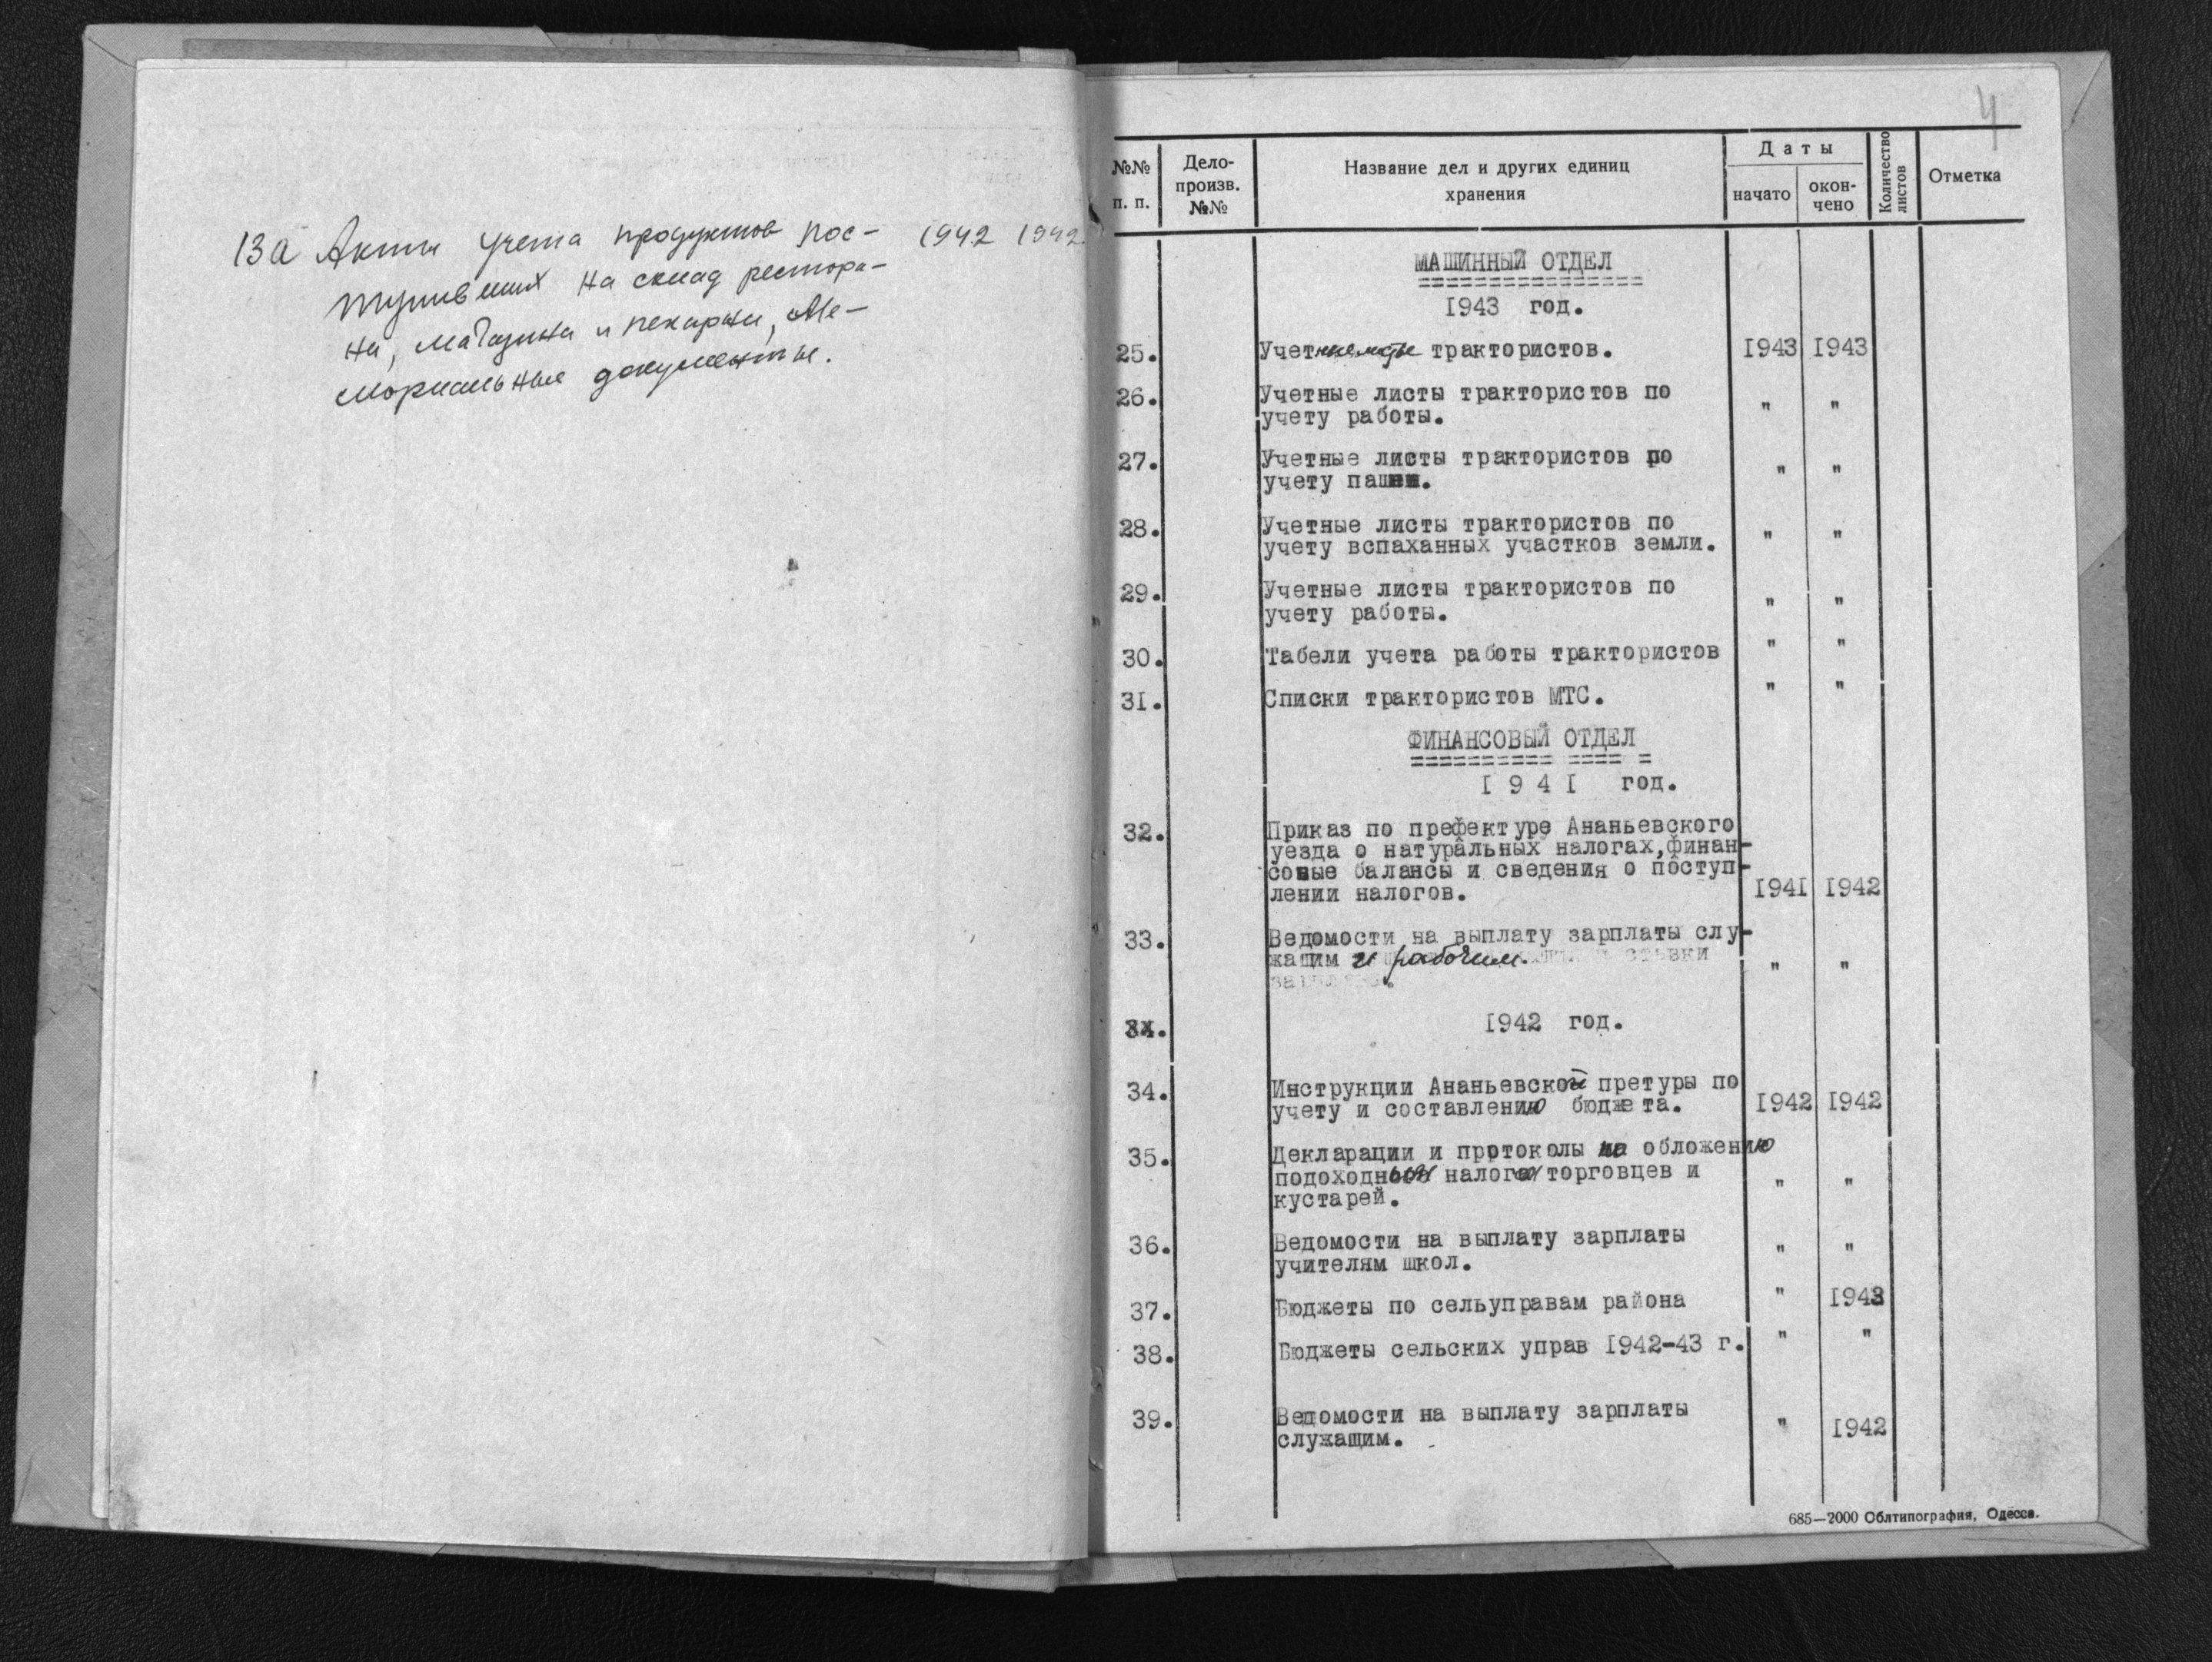 13а Акты учета продуктов пос- 1942 1942
тупивших на склад рестора-
на, магазина и пекарни, Ме-
мориальные документы.
4
№№ п. п. Дело-произв. №№ Название дел и других единиц хранения Даты начато окон-чено Количество листов Отметка
МАШИННЫЙ ОТДЕЛ
1943 год.
25. Учетные листы трактористов. 1943 1943
26. Учетные листы трактористов по
учету работы. " "
27. Учетные листы трактористов по
учету пашни. " "
28. Учетные листы трактористов по
учету вспаханных участков земли. " "
29. Учетные листы трактористов по
учету работы. " "
30. Табели учета работы трактористов " "
31. Списки трактористов МТС. " "
ФИНАНСОВЫЙ ОТДЕЛ
1941 год.
32. Приказ по префектуре Ананьевского
уезда о натуральных налогах,финан-
совые балансы и сведения о поступ-
лении налогов. 1941 1942
33. Ведомости на выплату зарплаты слу-
жащим и рабочим. " "
1942 год.
34. Инструкции Ананьевской претуры по
учету и составлению бюджета. 1942 1942
35. Декларации и протоколы по обложению
подоходным налогом торговцев и
кустарей. " "
36. Ведомости на выплату зарплаты
учителям школ. " "
37. Бюджеты по сельуправам района " 1943
38. Бюджеты сельских управ 1942-43 г. " "
39. Ведомости на выплату зарплаты
служащим. " 1942
685—2000 Облтипография, Одесса.